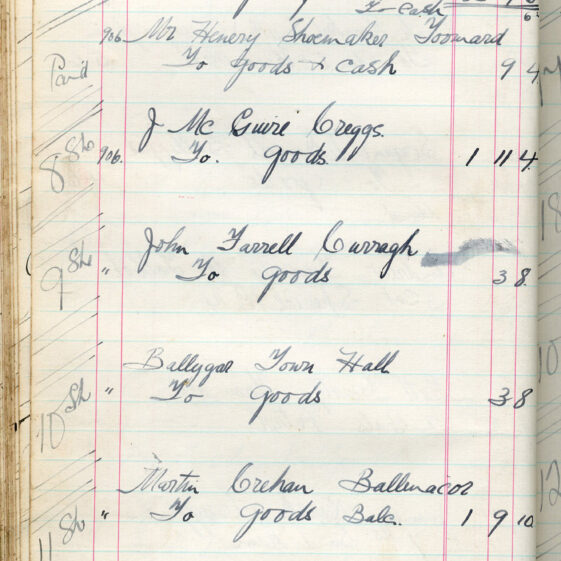 To cash
906 Mr Henery Shoemaker Toomard
Paid To goods & cash 9 4
J Mc Guire Creggs.
8 Sho 906. To. goods 1 11 4
John Farrell Curragh
9 Sho " To goods 3 8
Ballygar Town Hall
10 Sh " To goods 3 8
Martin Crehan Ballinacor
11 Sho " To goods Balc. 1 9 10
18
10
12